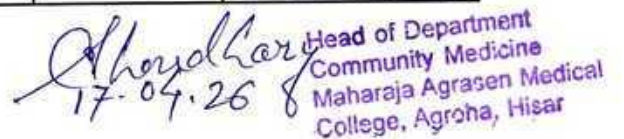 Choudhary
17.04.26
Head of Department
Community Medicine
Maharaja Agrasen Medical
College, Agroha, Hisar